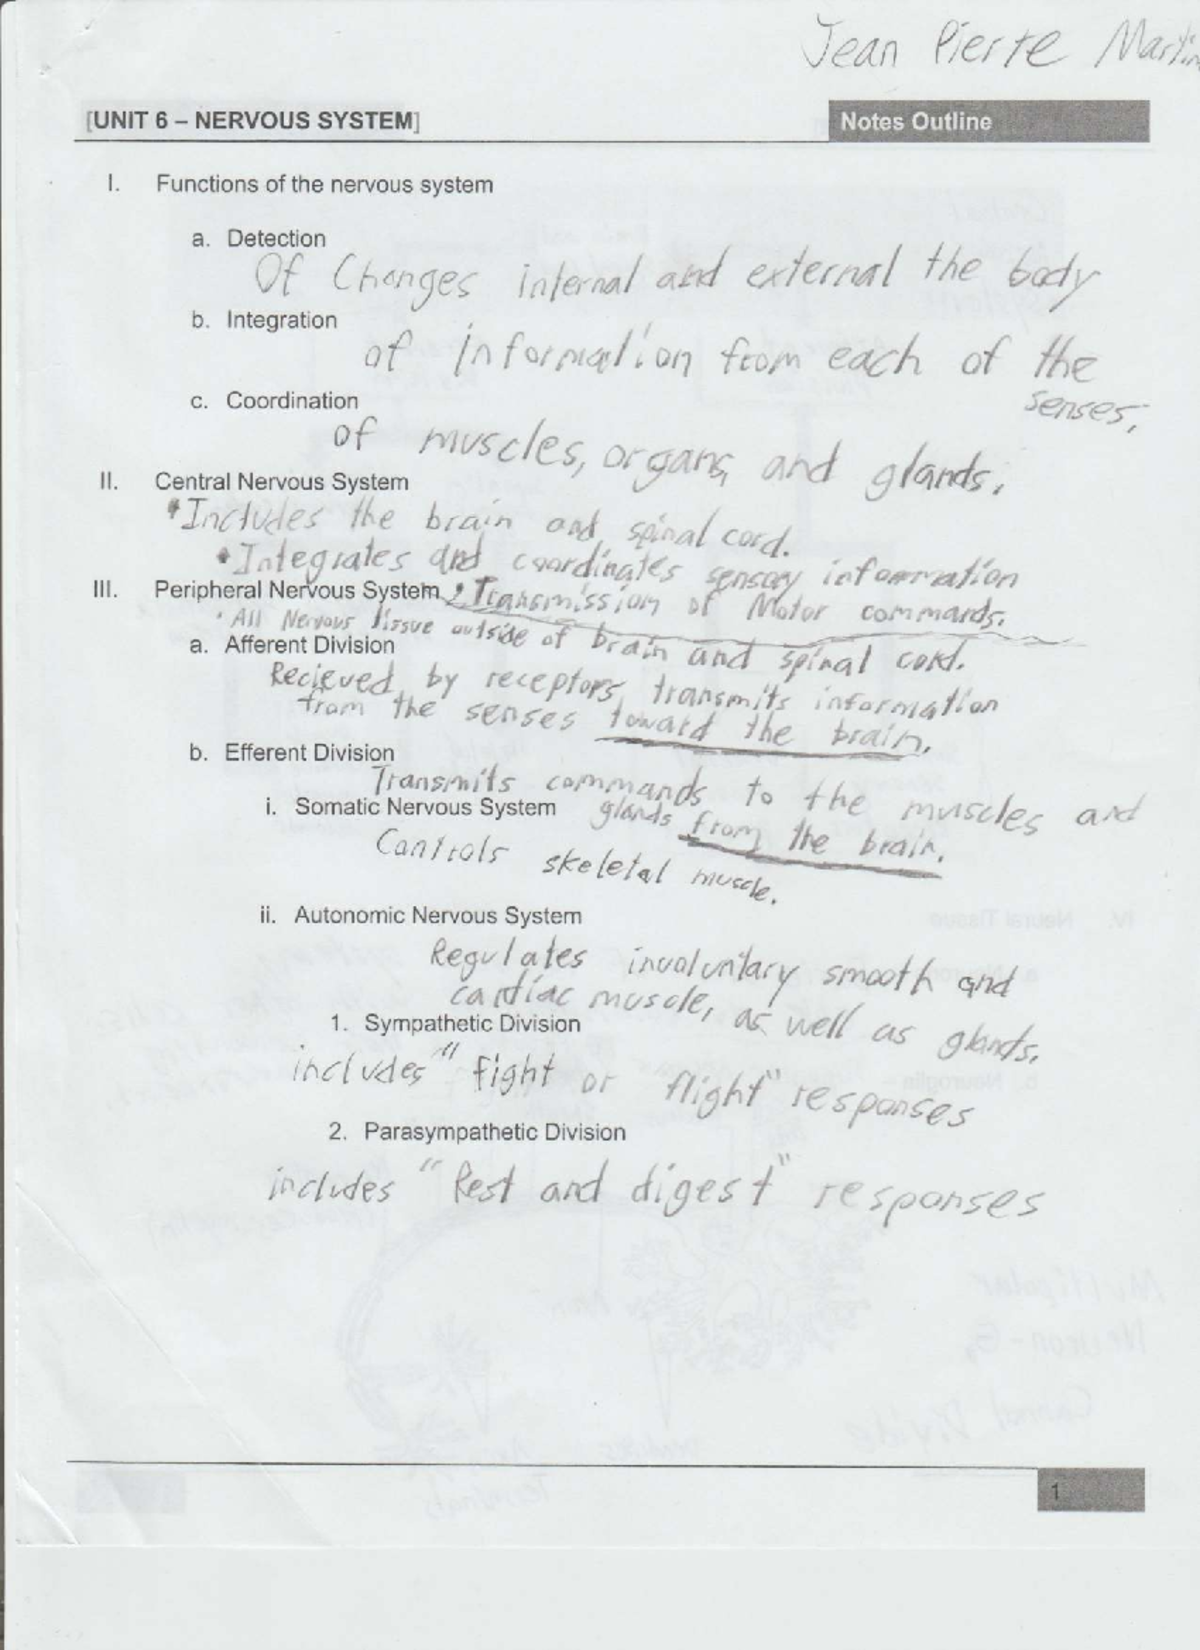 Jean Pierre Martin
[UNIT 6 – NERVOUS SYSTEM]
Notes Outline
I. Functions of the nervous system
a. Detection
Of Changes internal and external the body
b. Integration
of information from each of the
senses,
c. Coordination
of muscles, organs, and glands.
II. Central Nervous System
• Includes the brain and spinal cord.
• Integrates and coordinates sensory information
III. Peripheral Nervous System • Transmission of Motor commards.
• All Nervous tissue outside of brain and spinal cord.
a. Afferent Division
Recieved by receptors, transmits information
from the senses toward the brain.
b. Efferent Division
Transmits commands to the muscles and
i. Somatic Nervous System glands from the brain.
Controls skeletal muscle.
ii. Autonomic Nervous System
Regulates involuntary smooth and
cardiac muscle, as well as glands.
1. Sympathetic Division
includes "fight or flight" responses
2. Parasympathetic Division
includes "Rest and digest" responses
1